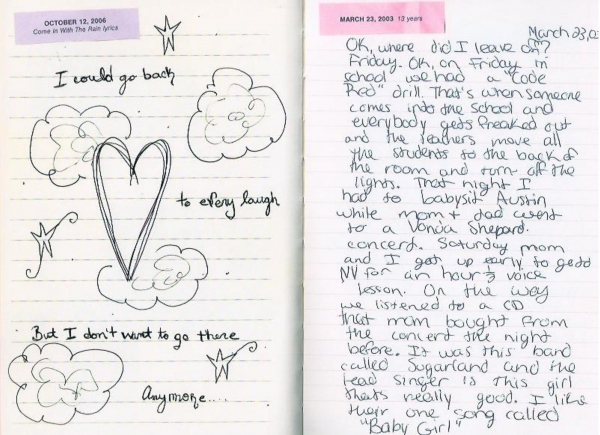 OCTOBER 12, 2006
Come In With The Rain lyrics
I could go back
to every laugh
But I don't want to go there
Anymore....
MARCH 23, 2003 13 years
March 23, 03
OK, where did I leave off?
Friday. OK, on Friday in
school we had a "Code
Red" drill. That's when someone
comes into the school and
everybody gets freaked out
and the teachers move all
the students to the back of
the room and turn off the
lights. That night I
had to babysit Austin
while mom + dad went
to a Vonda Shepard
concert. Saturday mom
and I got up early to go to
NV for an hour ½ voice
lesson. On the way
we listened to a CD
that mom bought from
the concert the night
before. It was this band
called Sugarland and the
lead singer is this girl
thats really good. I like
their one song called
"Baby Girl"